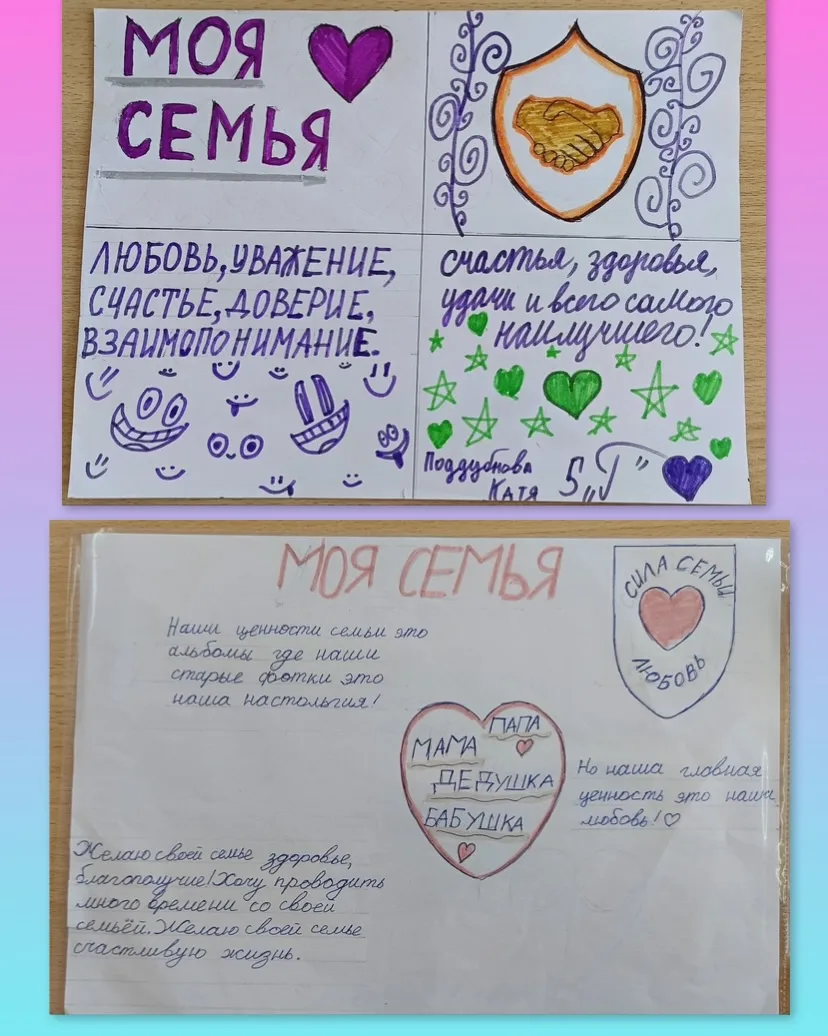 МОЯ
СЕМЬЯ
ЛЮБОВЬ, УВАЖЕНИЕ,
СЧАСТЬЕ, ДОВЕРИЕ,
ВЗАИМОПОНИМАНИЕ.
счастья, здоровья,
удачи и всего самого
наилучшего!
Поддубнова
Катя 5 „Г"
МОЯ СЕМЬЯ
СИЛА СЕМЬИ
ЛЮБОВЬ
Наши ценности семьи это
альбомы где наши
старые фотки это
наша настольгия!
ПАПА
МАМА
ДЕДУШКА
БАБУШКА
Но наша главная
ценность это наша
любовь!
Желаю своей семье здоровье,
благополучие! Хочу проводить
много времени со своей
семьёй. Желаю своей семье
счастливую жизнь.